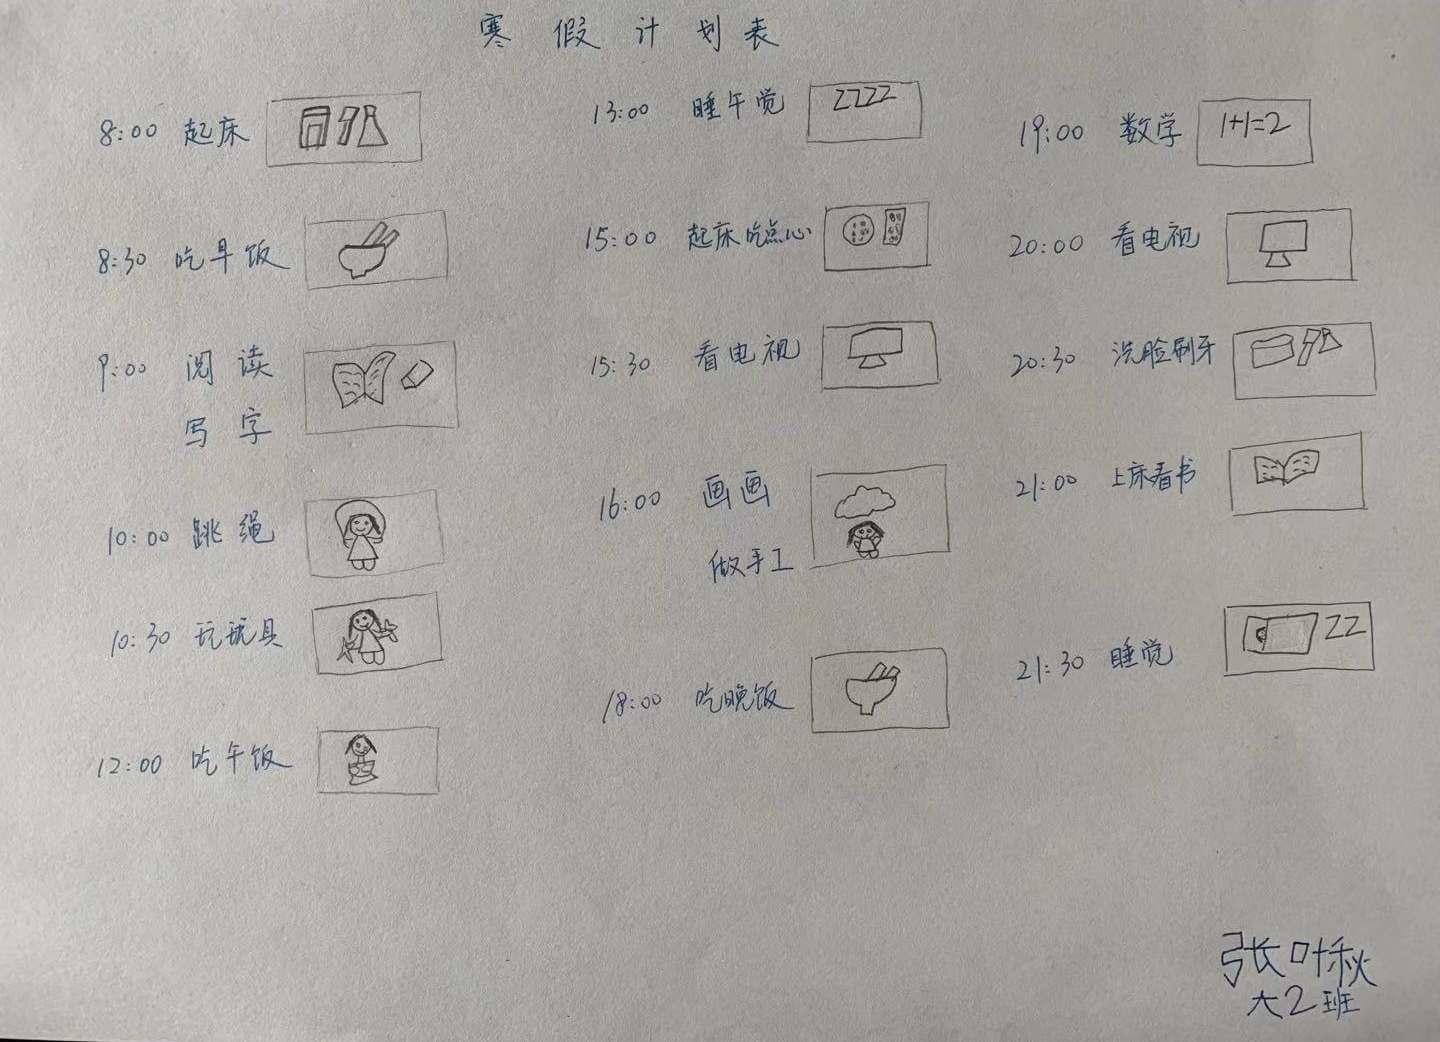 寒假计划表
8:00 起床
8:30 吃早饭
9:00 阅读
写字
10:00 跳绳
10:30 玩玩具
12:00 吃午饭
13:00 睡午觉 ZZZZ
15:00 起床吃点心
15:30 看电视
16:00 画画
做手工
18:00 吃晚饭
19:00 数学 1+1=2
20:00 看电视
20:30 洗脸刷牙
21:00 上床看书
21:30 睡觉 ZZ
张叶秋
大2班